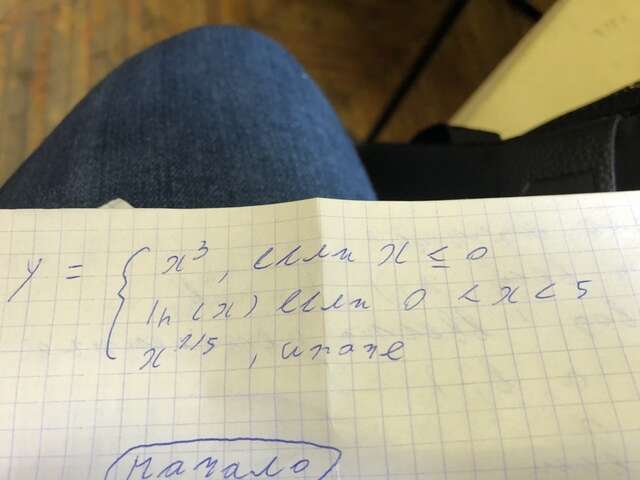 y = { x³, если x ≤ 0
ln(x) если 0 < x < 5
x^2/5, иначе
начало